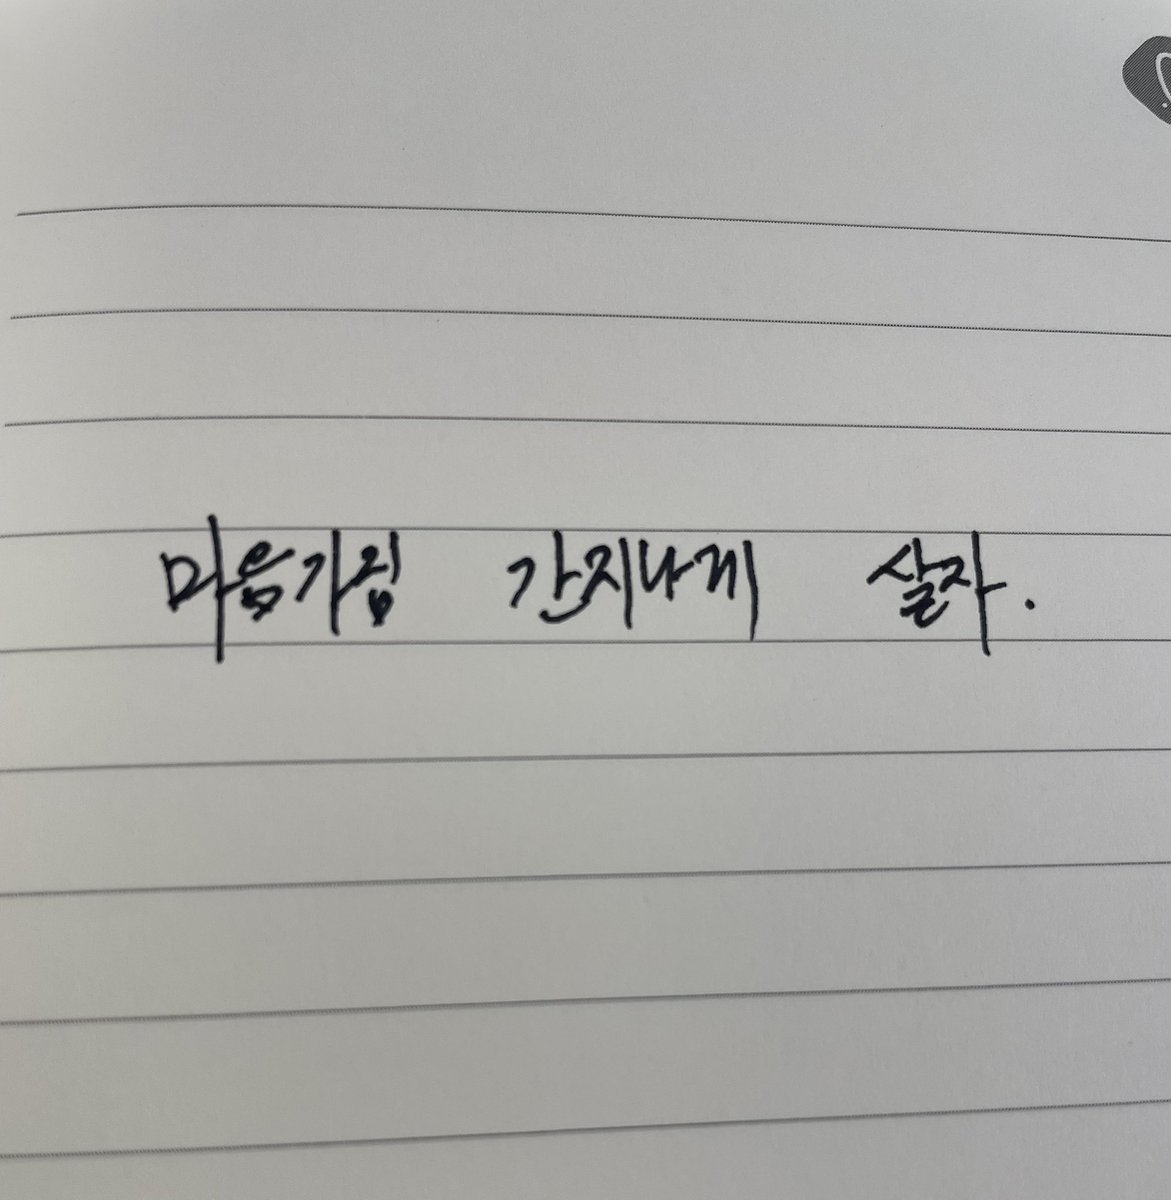 마음가짐 간지나게 살자.